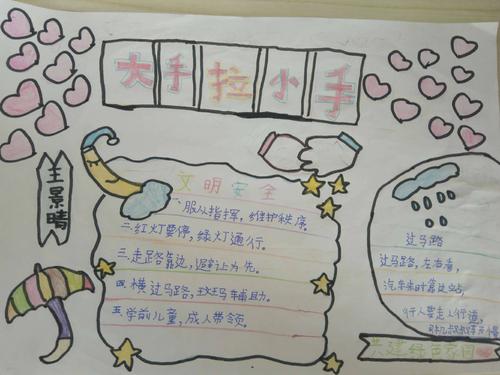 大手拉小手
王景晴
文明安全
一.服从指挥,维护秩序。
二.红灯要停,绿灯通行。
三.走路靠边,避让为先。
四.横过马路,斑马辅助。
五.学前儿童,成人带领。
过马路
过马路,左右看,
汽车来时靠边站
行人要走人行道,
共建绿色家园